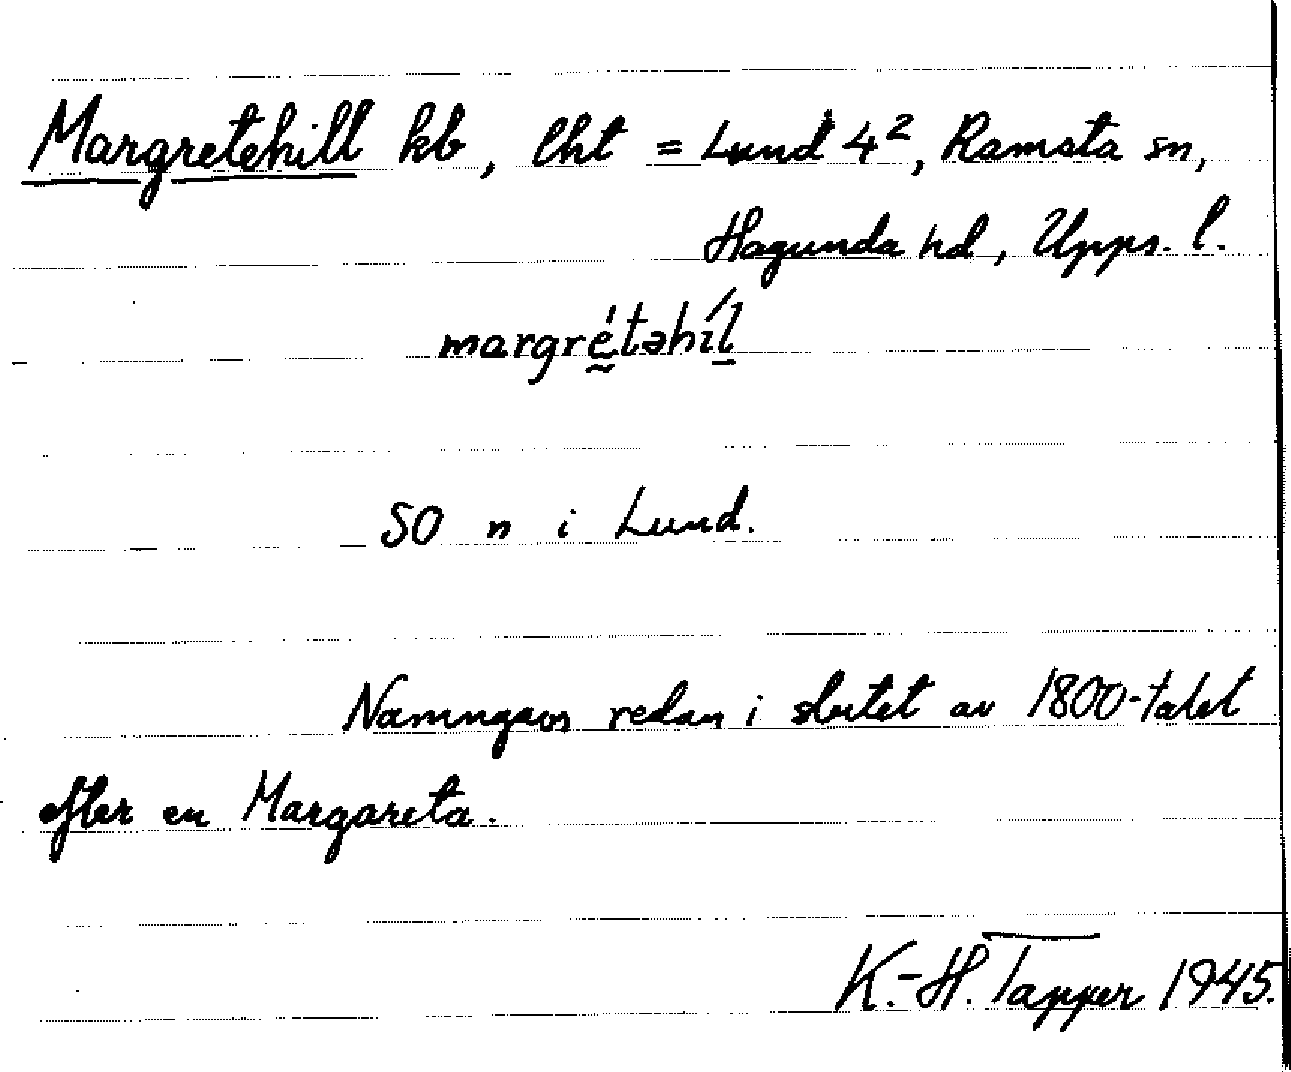 Margretehill kb, lht = Lund 4², Ramsta sn,
Hagunda hd, Upps. l.
margrétəhíl
SO n i Lund.
Namngavs redan i slutet av 1800-talet
efter en Margareta.
K.-H. Tapper 1945.